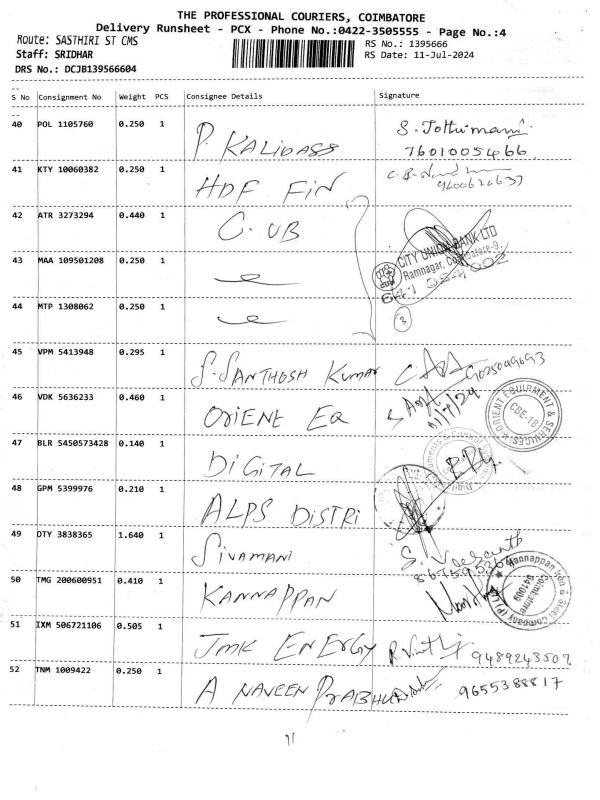 THE PROFESSIONAL COURIERS, COIMBATORE
Delivery Runsheet - PCX - Phone No.:0422-3505555 - Page No.:4
Route: SASTHIRI ST CMS
RS No.: 1395666
Staff: SRIDHAR
RS Date: 11-Jul-2024
DRS No.: DCJB139566604
S No Consignment No Weight PCS Consignee Details Signature
40 POL 1105760 0.250 1 P. KALIDASS
7601005466
41 KTY 10060382 0.250 1 HDF FIN
42 ATR 3273294 0.440 1 C. UB
CITY UNION BANK LTD
Ramnagar, Coimbatore-9.
43 MAA 109501208 0.250 1
44 MTP 1308062 0.250 1
3
45 VPM 5413948 0.295 1 S. SANTHOSH KUMAR
46 VDK 5636233 0.460 1 ORIENT EQ
ORIENT EQUIPMENT & SERVICES
CBE-18
47 BLR 5450573428 0.140 1 DIGITAL
48 GPM 5399976 0.210 1 ALPS DISTRI
49 OTY 3838365 1.640 1 SIVAMANI
50 TMG 200600951 0.410 1 KANNAPPAN
Kannappan Iron & Steel Company (P) Ltd
Coimbatore
641009
51 IXM 506721106 0.505 1 JMK ENERGY
9489243507
52 TNM 1009422 0.250 1 A NAVEEN PRABHU
9655388817